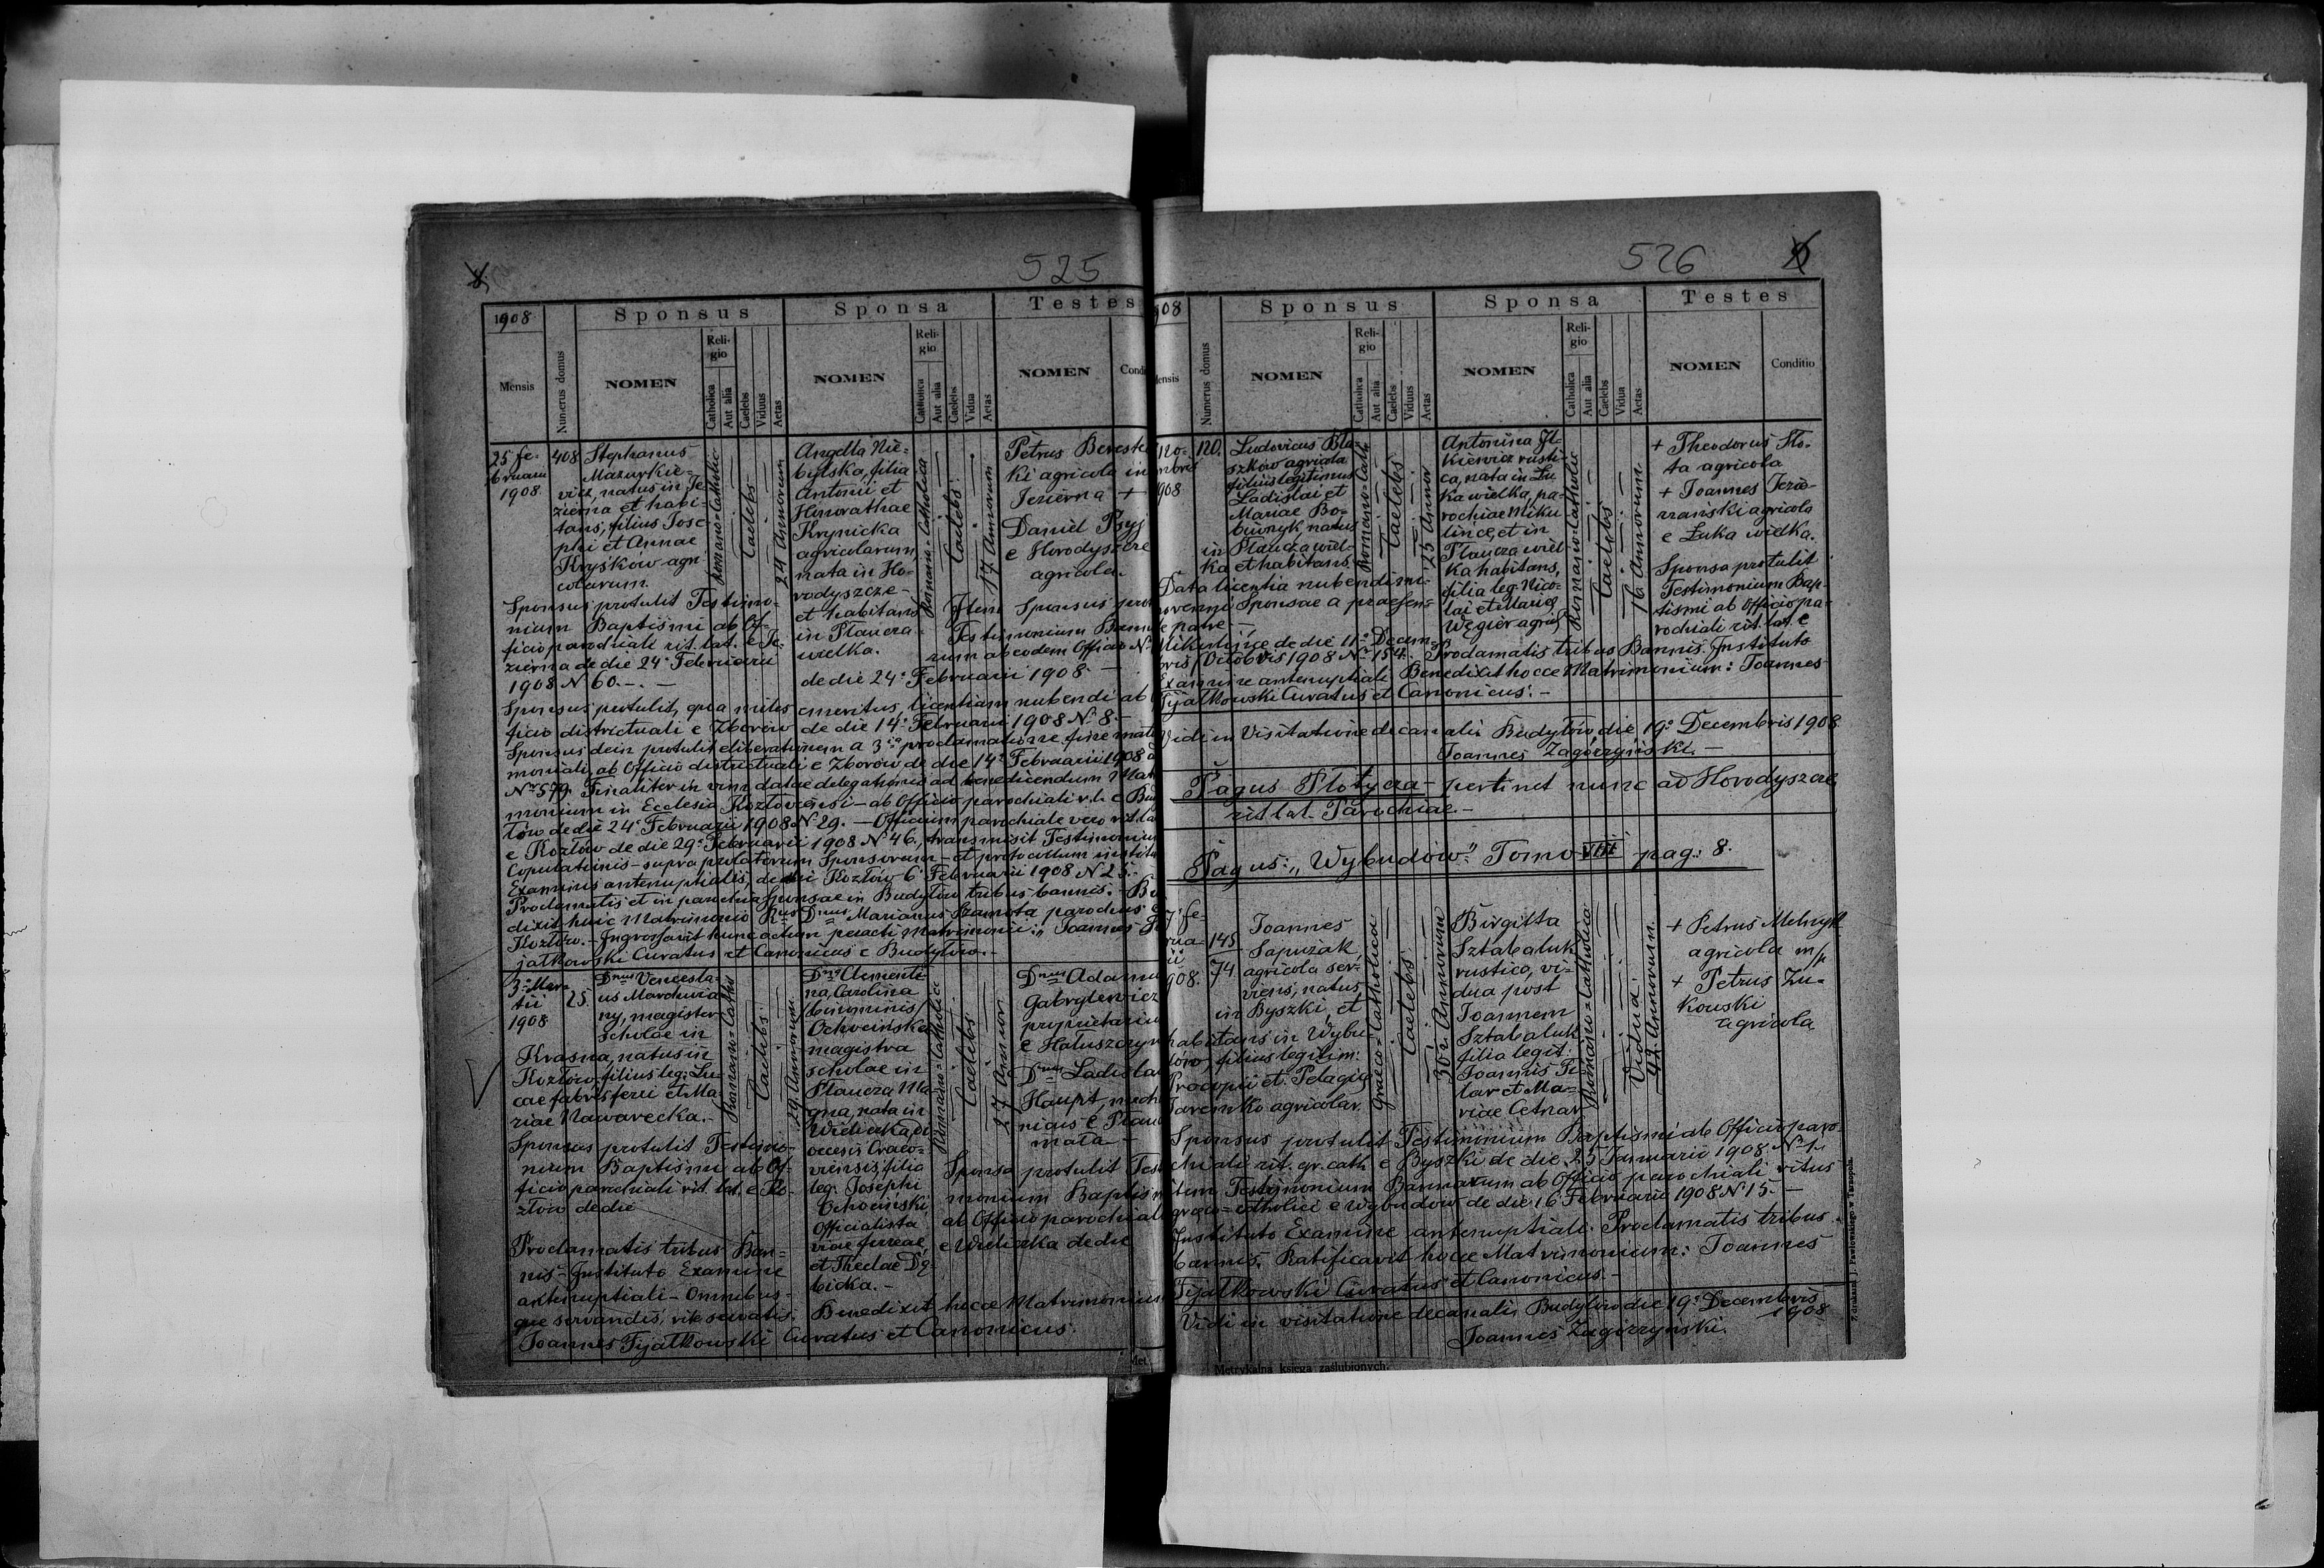 525
1908
Sponsus
Sponsa
Testes
Mensis
Numerus domus
NOMEN
Religio
Catholica
Aut alia
Caelebs
Viduus
Aetas
NOMEN
Religio
Catholica
Aut alia
Caelebs
Vidua
Aetas
NOMEN
25 fe-
bruarii
1908
408
Stephanus
Mazurkie-
wicz, natus in Je-
zierna et habi-
tans, filius Jose-
phi et Annae
Kryśków agri-
colarum.
Romano-Catholic
Caelebs
24 Annorum
Angella Nie-
bylska, filia
Antonii et
Honorathae
Krynicka
agricolarum
nata in Ho-
rodyszcze-
et habitans
in Płaucza-
wielka.
Romano-Catholica
Caelebs
17 Annorum
Petrus
ki agricola in
Jezierna +
Daniel
e Horodyszcze
agricola.
Sponsus protulit Testimo-
nium Baptismi ab Of-
ficio parochiali rit. lat. e Je-
zierna de die 24a Februarii
1908 N 60.-
Item Sponsus
Testimonium
rum ab eodem Officio
de die 24a Februarii 1908 -
Sponsus protulit, qua miles emeritus, licentiam nubendi ab
ficio districtuali e Zborów de die 14a Februarii 1908 No 8.-
Sponsus dein protulit eliberationem a 3ia proclamatione fine
moniali, ab Officio districtuali e Zborów de die 14a Februarii 1908
No 579. Finaliter in vim datae delegationis ad benedicendum
monium in Ecclesia Kozłoviensi - ab Officio parochiali r.l. e
łów de die 24a Februarii 1908 N 29. - Officium parochiale vero rit. la
e Kozłów de die 29a Februarii 1908 No 46, transmisit Testimonium
Copulationis - supra prolatorum Sponsorum - et protocollum
Examinis antenuptialis, de die Kozłów 6 Februarii 1908 N 25.-
Proclamatis et in parochia Sponsae in Budyłów tribus bannis. -
dixit huic Matrimonio Rus Dnus Marianus Szamota parochus
Kozłów. - Ingrossavit hunc actum peracti Matrimonii: Joannes
jałkowski Curatus et Canonicus e Budyłów. -
3a Mar-
tii
1908
25.
Dnus Vencesla-
us
ny, magister
scholae in
Krasna, natus in
Kozłów, filius leg: Lu-
cae fabri ferrii et Ma-
riae Nawarecka.-
Romano-Cath
Caelebs
29 Annorum
Dna Clementi-
na, Carolina
binominis
Ochocińska
magistra
scholae in
Płaucza Ma-
gna, nata in
Wieliczka, di-
oecesis Craco-
viensis, filia
leg. Josephi
Ochociński,
Officialista
viae ferreae,
et Theclae Dę-
bicka.-
Romano-Catholica
Caelebs
27 Annor
Dnus
Gabrylewicz
proprietarius
e
Dnus
Haupt,
nicus e
mała -
Sponsus protulit Testimo-
nium Baptismi ab Of-
ficio parochiali rit. lat. e Ko-
złów de die
Sponsa protulit
monium
ab Officio
e Wieliczka de die
Proclamatis tribus Ban-
nis - Instituto Examine
antenuptiali - Omnibus-
que servandis, rite servatis.
Benedixit hocce Matrimonium
Joannes Fijałkowski Curatus et Canonicus.
526
908
Sponsus
Sponsa
Testes
Numerus domus
NOMEN
Religio
Catholica
Aut alia
Caelebs
Viduus
Aetas
NOMEN
Religio
Catholica
Aut alia
Caelebs
Vidua
Aetas
NOMEN
Conditio
908
120.
Ludovicus Bła-
szków agricola
filius legitimus
Ladislai et
Mariae
natus
in Płaucza wiel-
ka et habitans.
Romano-Cath
Caelebs
25 Annor
Antonina
kiewicz rusti-
ca, nata in Łu-
ka wielka, pa-
rochiae Miku-
lińce, et in
Płaucza wiel-
ka habitans,
filia leg. Nico-
lai et Mariae
Węgier agric
Romano-Catholic
Caelebs
16 Annorum
+ Theodorus
agricola
+ Joannes
agricola
e Łuka wielka.
Sponsa protulit
Testimonium Bap-
tismi ab Officio pa-
rochiali rit. lat. e
Data licentia nubendi mi-
norenni Sponsae a praesen-
te patre -
Mikulińce de die 11a
bris Octobris 1908 No 154. Proclamatis tribus Bannis. Instituto
Examine antenuptiali. Benedixit hocce Matrimonium: Joannes
Fijałkowski Curatus et Canonicus. -
Vidi in Visitatione decanali Budyłów, die 19a Decembris 1908
Joannes Zagórzyński. -
Pagus Płotycza - pertinet nunc ad Horodyszcze
rit lat. Parochiae. -
Pagus: "Wybudów" Tomo VIII pag: 8.
908.
145
74
Joannes
Sapużak
agricola ser-
viens, natus
in Byszki, et
habitans in Wybu-
dów, filius legitim:
Procopii et Pelagiae
Jaremko agricolar.
Graeco-Catholica
Caelebs
30 Annorum
Birgitta
Sztabaluk
rustica, vi-
dua post
Joannem
Sztabaluk
filia legit:
Joannis
et Ma-
riae Cetnar
Romano-Catholica
Vidua
42 Annorum.
+ Petrus Melnyk
agricola m/p
+ Petrus Żu-
kowski
agricola
Sponsus protulit Testimonium Baptismi ab Officio paro-
chiali rit. gr. cath. e Byszki de die 25 Januarii 1908 No 1.
item Testimonium Bannorum ab Officio parochiali ritus
graeco-catholici e Wybudów de die 16 Februarii 1908 N 15. -
Instituto Examine antenuptiali. Proclamatis tribus
bannis. Ratificavit hocce Matrimonium: Joannes
Fijałkowski Curatus et Canonicus. -
Vidi in visitatione decanali Budyłów die 19a Decembris
1908
Joannes Zagórzyński.
Metrykalna księga zaślubionych.
Z drukarni J. Pawłowskiego w Tarnopolu.